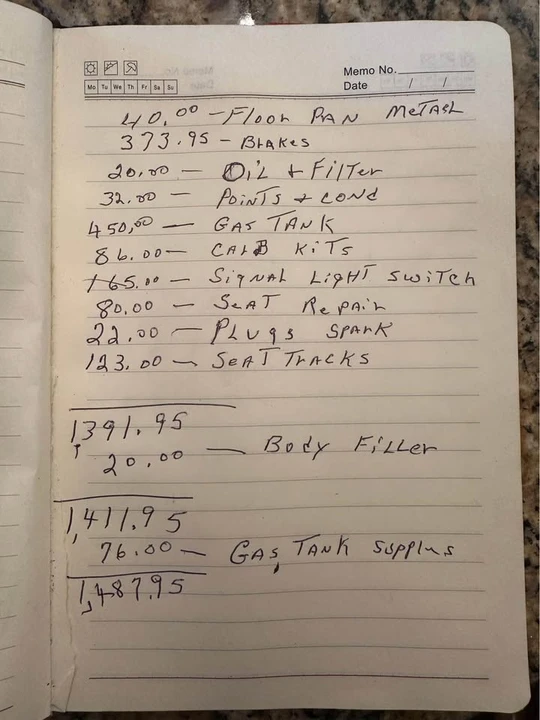 Memo No.
Mo Tu We Th Fr Sa Su
Date / /
40.00 - Floor PAN MeTAL
373.95 - BrAKes
20.00 — OiL + FilTer
32.00 — PoiNTS + COND
450,00 — GAS TANK
86.00 — CARB KiTS
165.00 — SigNAL LighT SwiTch
80.00 — SeAT RePAir
22.00 — PLUgs SPArK
123.00 — SeAT TrACKS
1391.95
20.00 — Body FiLLer
1,411.95
76.00 — GAS TANK SuPPLus
1,487.95